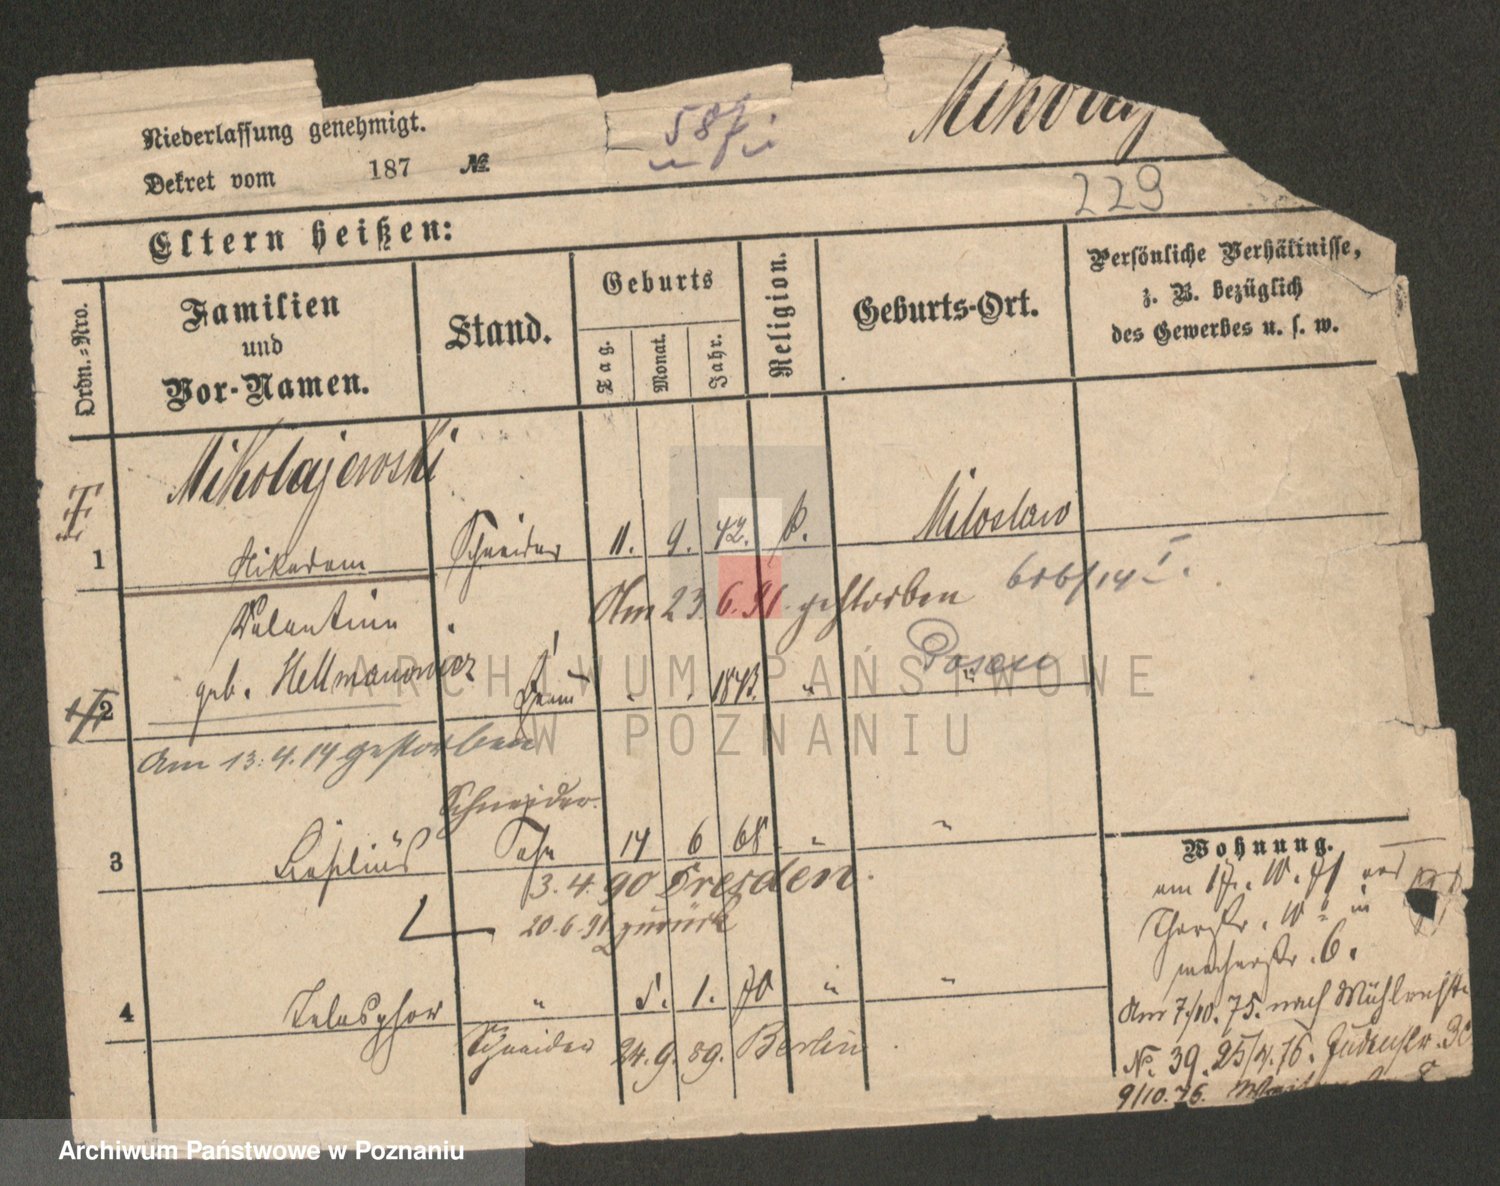 Niederlassung genehmigt.
Dekret vom 187 №
587
Mikolaj
229
Eltern heißen:
Ordn.=Nro.
Familien
und
Vor-Namen.
Stand.
Geburts
Tag.
Monat.
Jahr.
Religion.
Geburts-Ort.
Persönliche Verhältnisse,
z. B. bezüglich
des Gewerbes u. s. w.
Mikolajewski
1 Nikodem Schneider 11. 9. 42. k. Miloslaw
Am 23.6.91. gestorben
Valentine
2 geb. Hellmanowicz Frau " " 1843. " Posen
Am 13.4.14 gestorben
Schneider
3 Sohn 14 6 68 " "
3.4.90 Dresden.
20.6.91 zurück
4 Telesphor " 5. 1. 70 " "
Schneider 24.9.89. Berlin
Wohnung.
am 17. 10. 71
6.
Am 7/10.75. nach
№ 39. 25/4.76. Judenstr.
9/10.76.
ARCHIWUM PAŃSTWOWE
W POZNANIU
Archiwum Państwowe w Poznaniu